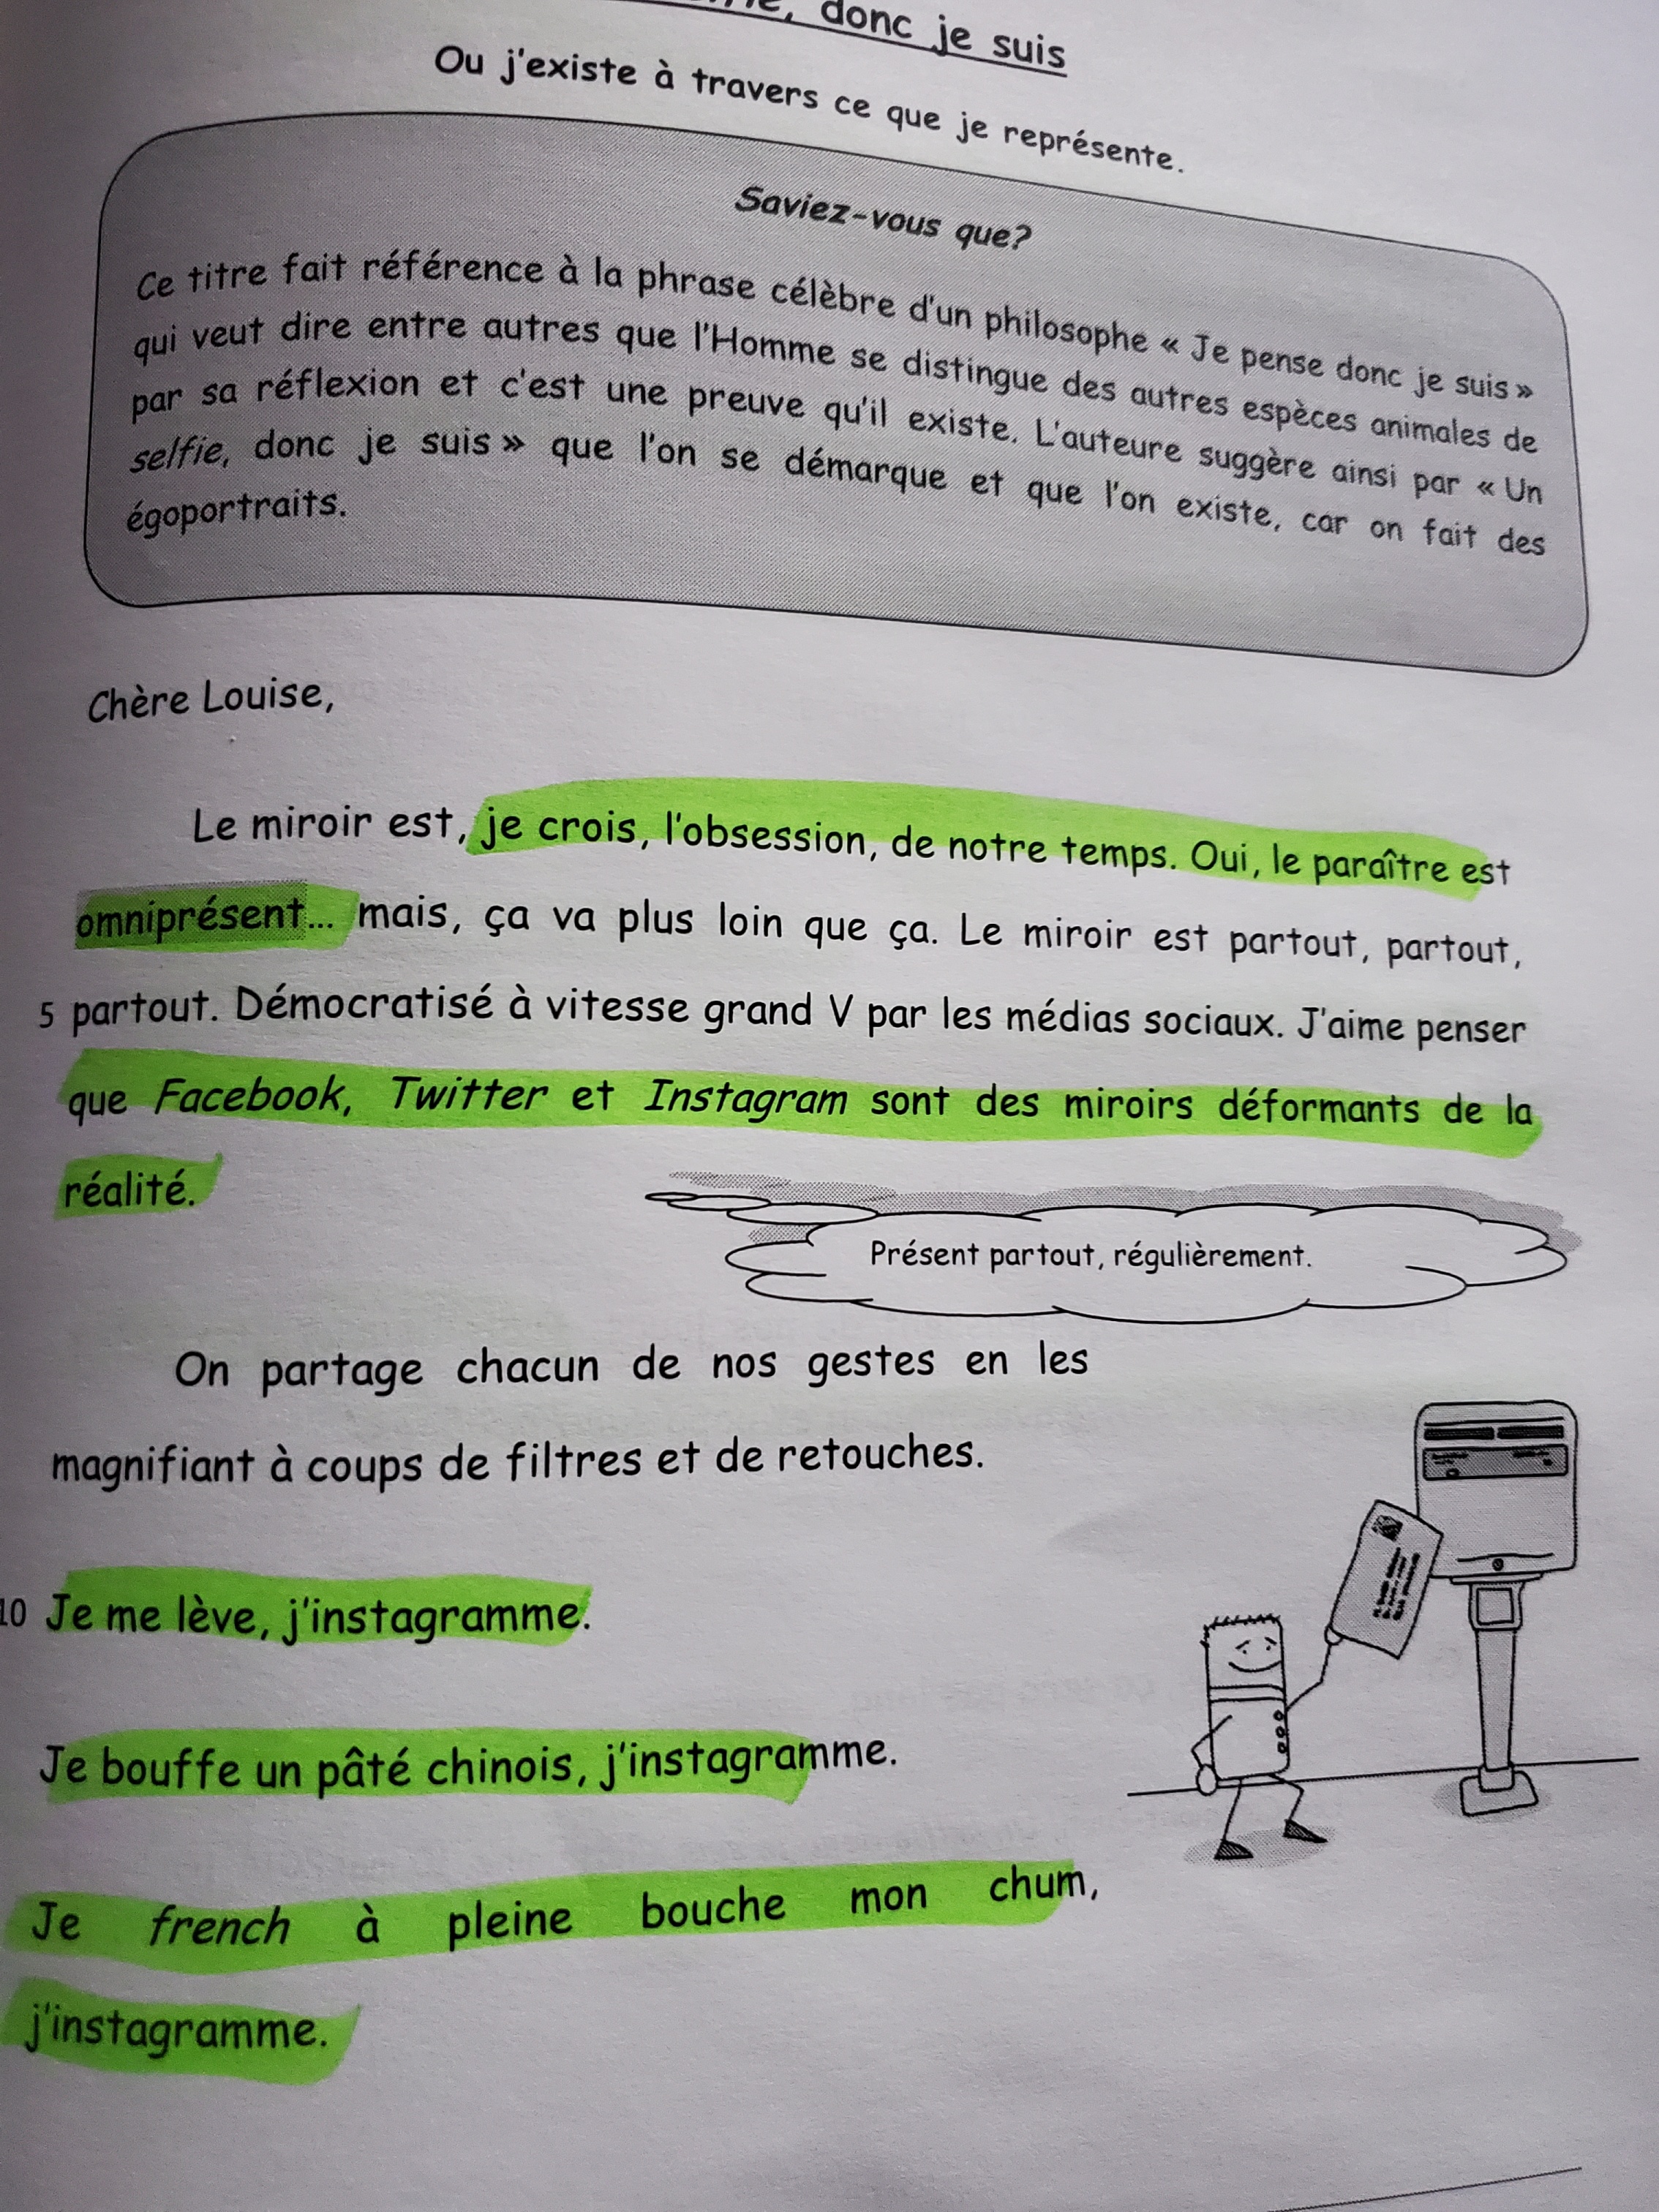 donc je suis
Ou j'existe à travers ce que je représente.
Saviez-vous que?
Ce titre fait référence à la phrase célèbre d'un philosophe « Je pense donc je suis »
qui veut dire entre autres que l'Homme se distingue des autres espèces animales de
par sa réflexion et c'est une preuve qu'il existe. L'auteure suggère ainsi par « Un
selfie, donc je suis » que l'on se démarque et que l'on existe, car on fait des
égoportraits.
Chère Louise,
Le miroir est, je crois, l'obsession, de notre temps. Oui, le paraître est
omniprésent... mais, ça va plus loin que ça. Le miroir est partout, partout,
5 partout. Démocratisé à vitesse grand V par les médias sociaux. J'aime penser
que Facebook, Twitter et Instagram sont des miroirs déformants de la
réalité.
Présent partout, régulièrement.
On partage chacun de nos gestes en les
magnifiant à coups de filtres et de retouches.
10 Je me lève, j'instagramme.
Je bouffe un pâté chinois, j'instagramme.
Je french à pleine bouche mon chum,
j'instagramme.